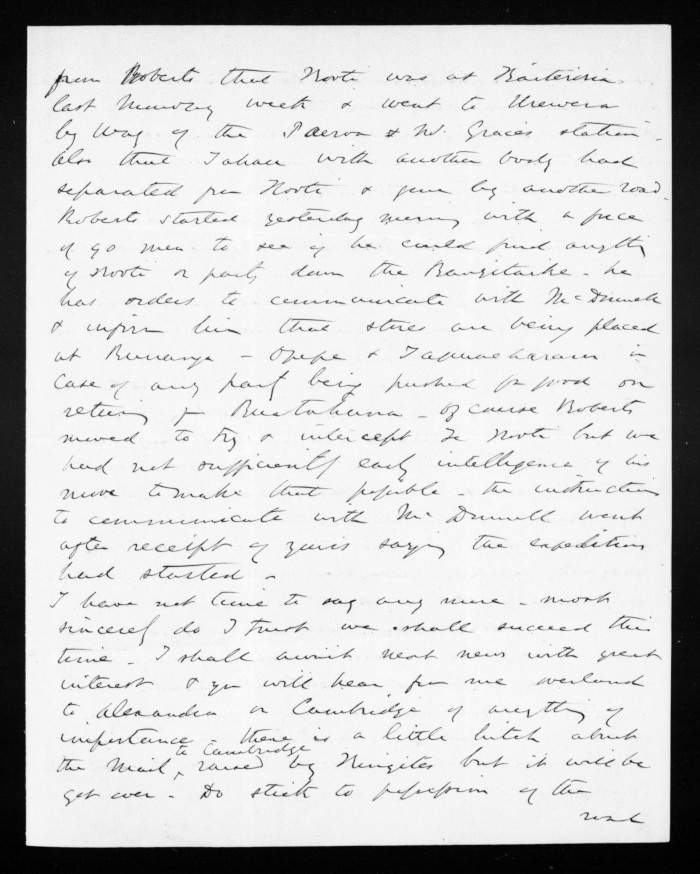 from Roberts that Kooti was at
last Monday week & went to Urewera
by way of the Paeroa & Mr. Graces station -
also that Tahau with another body had
separated from Kooti & gone by another road.
Roberts started yesterday morning with a force
of 90 men to see if he could find anything
of Kooti or party down the Rangitaike - he
has orders to communicate with McDonnell
& inform him that stores are being placed
at Runanga - Opepe & in
case of any party being pushed for food on
returning fr Ruatahuna - Of course Roberts
moved to try & intercept Te Kooti but we
had not sufficiently early intelligence of his
move to make that possible - the instructions
to communicate with McDonnell went
after receipt of yours saying the expedition
had started -
I have not time to say any more - most
sincerely do I trust we shall succeed this
time - I shall await next news with great
interest & you will hear from me overland
to Alexandra or Cambridge of anything of
importance - there is a little hitch about
the Mail to Cambridge, raised by but it will be
got over - Do stick to possession of the